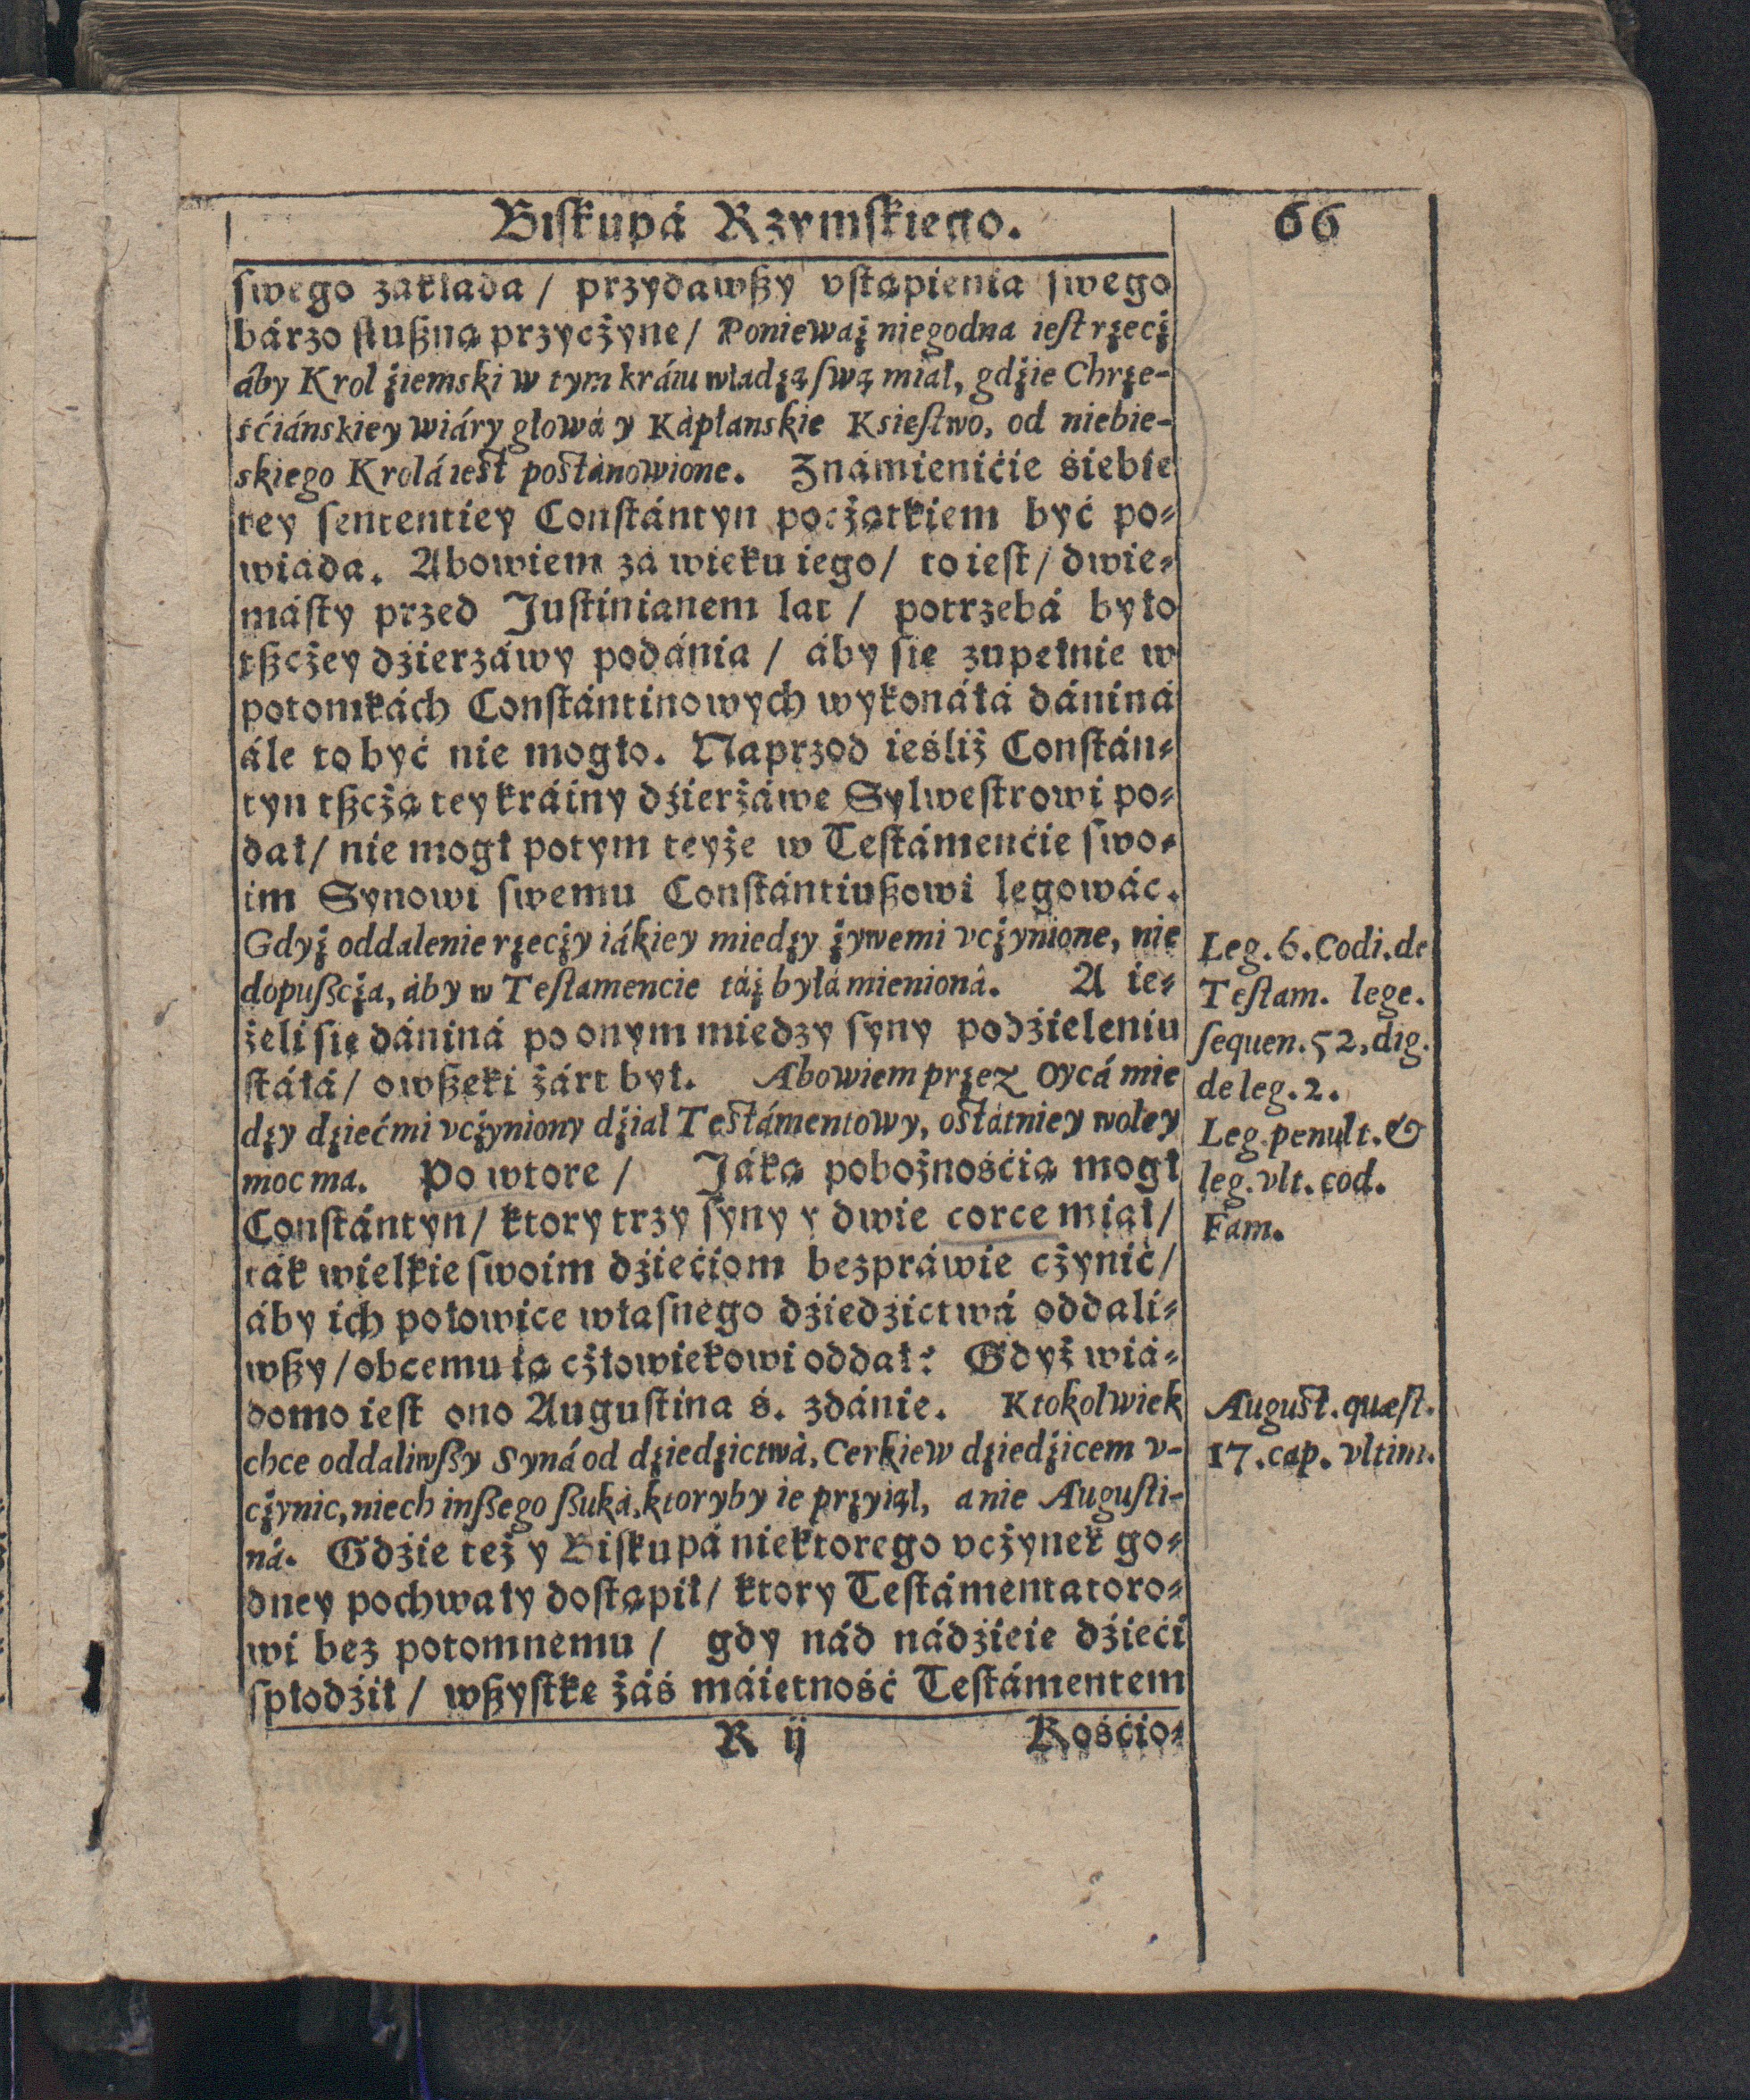 Biſkupá Rzymſkiego. 66
ſwego zakłada / przydawßy vſtąpienia ſwego
bárzo ſłußną przycżynę / Poniewaz niegodna ieſt rzecz
áby Krol ziemski w tym kráiu władzą ſwą miał, gdzie Chrze-
śćiánskiey wiáry głowá y Kápłanskie Ksieſtwo, od niebie-
skiego Krolá ieſt poſtánowione. Známieniċie śiebie
tey ſententiey Conſtántyn pocżątkiem być po⸗
wiáda. Abowiem zá wieku iego / to ieſt / dwie⸗
máſty przed Juſtinianem lat / potrzebá było
tßcżey dżierżáwy podánia / áby ſię zupełnie w
potomkách Conſtántinowych wykonáłá dániná
ále to być nie mogło. Naprzod ieśliż Conſtán⸗
tyn tßcżą tey kráiny dżierżáwę Sylweſtrowi po⸗
dał / nie mogł potym teyże w Teſtámenċie ſwo⸗
im Synowi ſwemu Conſtántiußowi legowác.
Gdyz oddalenie rzeczy iákiey miedzy zywemi vczynione, nie
dopußcza, áby w Teſtamencie táz byłá mienioná. A ie⸗
żeli się dániná po onym miedzy ſyny podżieleniu
ſtáłá / owßeki żárt był. Abowiem przez Oycá mie
dzy dziećmi vczyniony dział Teſtámentowy, oſtátniey woley
moc ma. Po wtore / Jáką pobożnośċią mogł
Conſtántyn / ktory trzy ſyny y dwie corce miał /
ták wielkie ſwoim dżieċiom bezpráwie cżynić /
áby ich połowice właſnego dżiedżictwá oddali⸗
wßy / obcemu ią cżłowiekowi oddał? Gdyż wiá⸗
domo ieſt ono Auguſtina ś. zdánie. Ktokolwiek
chce oddaliwßy Syná od dziedzictwá, Cerkiew dziedzicem v-
czynic, niech inßego ßuká, ktoryby ie przyiął, a nie Auguſti-
ná. Gdżie też y Biſkupá niektorego vcżynek go⸗
dney pochwały doſtąpił / ktory Teſtámentatoro⸗
wi bez potomnemu / gdy nád nádżieię dżieċi
ſpłodżił / wßyſtkę záś máiętność Teſtámentem
R ij Kośċio⸗
Leg. 6. Codi. de
Teſtam. lege.
ſequen. 52, dig.
de leg. 2.
Leg. penult. &
leg. vlt. cod.
Fam.
Auguſt. quæſt.
17. cap. vltim.